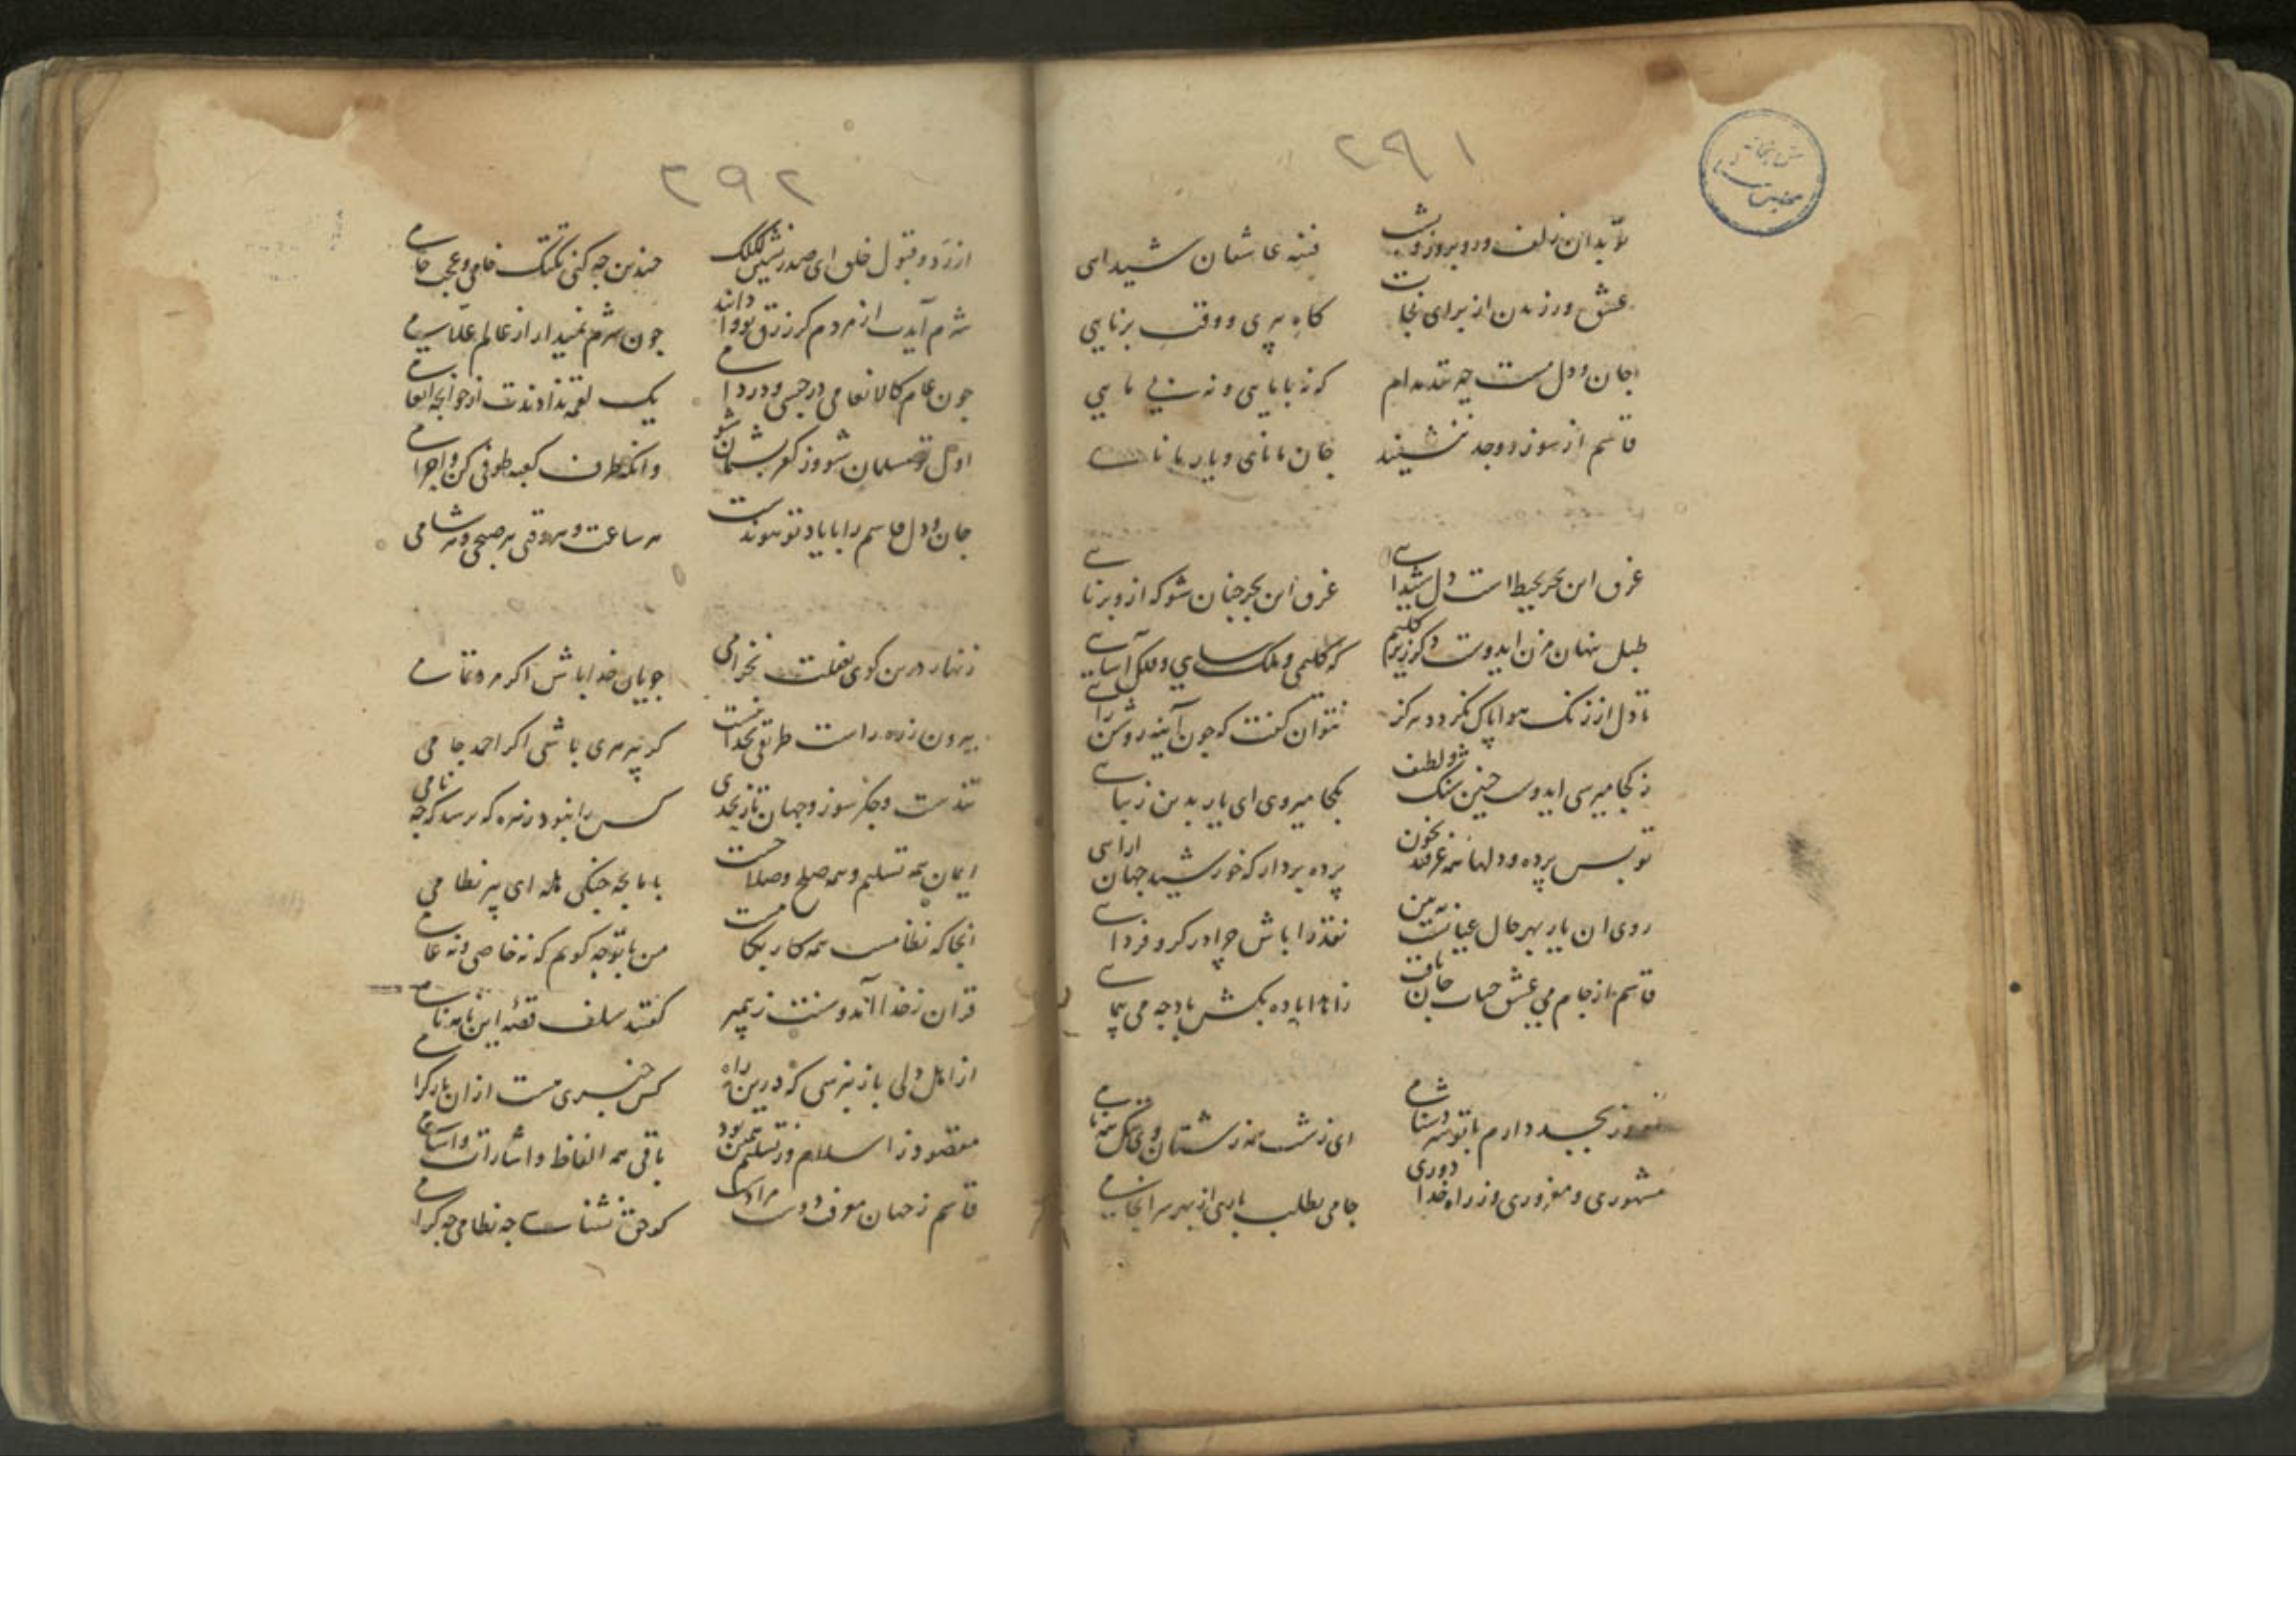 ۲۹۱
تو بدان زلف و رو بروز و بشب فتنه عاشقان شیدایی
عشق ورزیدن از برای نجات کاه پیری و وقت برنایی
جان و دل مست که نه با مایی و نه بی مایی
قاسم از سوز و وجد ننشیند
غرق این بحر محیط است دل شیدایی غرق این بحر چنان شو که ازو برنایی
طبل پنهان مزن ایدوست دکر زیر کلیم که کلیمی و ملک سایی و فلک آسایی
تا دل از زنک هوا پاک نکردد هرکز نتوان کفت که چون آینه روشن رایی
ز کجا میرسی ایدوست چنین شنک و لطیف بکجا میروی ای یار بدین زیبایی
تو پس پرده و دلها همه غرقند بخون پرده بردار که خورشید جهان ارایی
روی ان یار بهر حال عیانست ببین نقد را باش چرا در کرو فردایی
قاسم از جام می عشق حیات جان یافت زاهدا باده بکش باد چه می پیمایی
دارم با تو سر دشنامی ای زشت همه زشتان وی
مشهوری و مغروری وز راه خدا دوری جامی بطلب باری از بهر سرانجامی
۲۹۲
از رد و قبول خلق ای صدرنشین چندین چه کنی خامی و عجب خامی
شرم آیدت از مردم کر زرق تو وا دانند چون شرم نمیداری از عالم علامی
چون عام کالانعامی در حبس و در دامی یک لقمه ندادندت از خوانچه انعامی
اول تو مسلمان شو وز کفر پشیمان شو وانکه طرف کعبه طوفی کن و احرامی
جان و دل قاسم را با یاد تو پیوندست هر ساعت و هر وقتی هر صبحی و هر شامی
زنهار درین کوی بغفلت نخرامی جویان خدا باش اکر مرد تمامی
بیرون ز ره راست طریقی بخدا نیست کر پیر هری باشی اکر احمد جامی
تندست و جکر سوز و جهان تاز کس را نبود زهره که پرسد که چه نامی
ایمان همه تسلیم و همه صلح و صلاحست با ما بچه جنکی هله ای پیر نظامی
انجا که نظامست همه کار بکامست من با تو چه کویم که نه خاصی و نه عامی
قران ز خدا آمد و سنت ز پیمبر کفتند سلف قصه این نامه نامی
از اهل دلی باز نپرسی که درین راه کس را خبری هست از ان یار کرامی
مقصود ز اسلام وز تسلیم همین بود باقی همه الفاظ و اشارات و اسامی
قاسم ز جهان معرفت دوست مرادست کو حق نشناسد چه نظامی چه کرامی